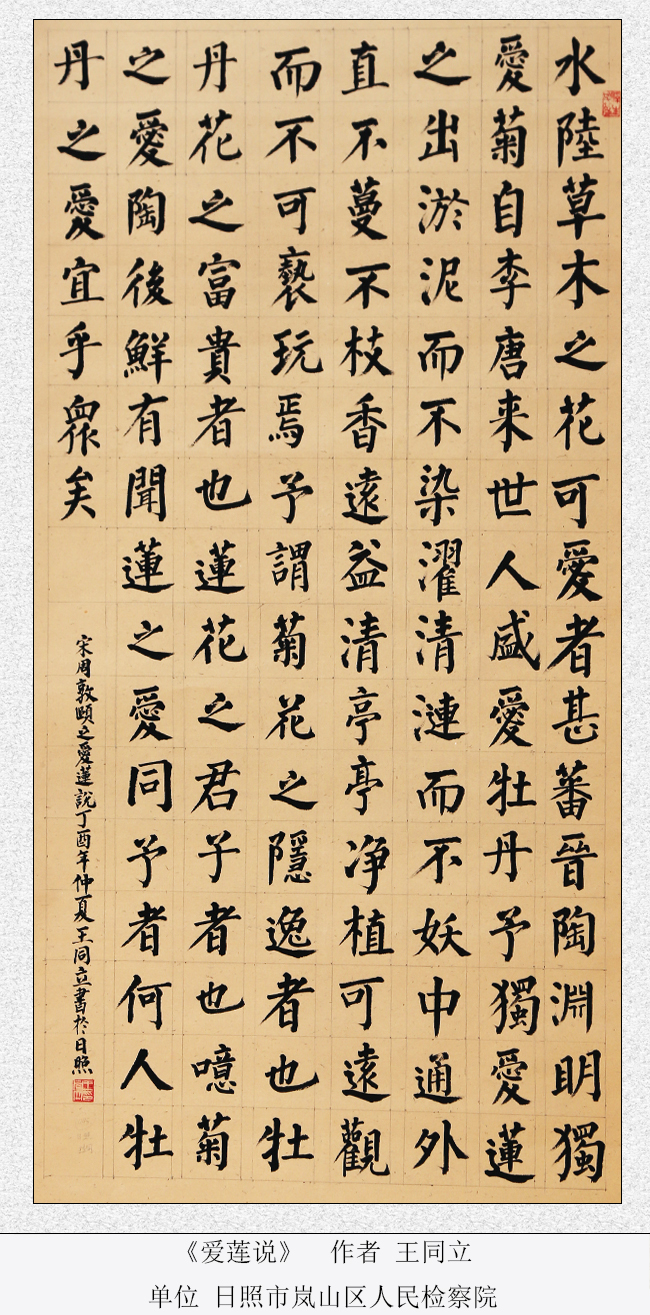 水陸草木之花可愛者甚蕃晉陶淵明獨
愛菊自李唐来世人盛愛牡丹予獨愛蓮
之出淤泥而不染濯清漣而不妖中通外
直不蔓不枝香遠益清亭亭净植可遠觀
而不可褻玩焉予謂菊花之隱逸者也牡
丹花之富貴者也蓮花之君子者也噫菊
之愛陶後鮮有聞蓮之愛同予者何人牡
丹之愛宜乎眾矣
宋周敦頤之愛蓮說丁酉年仲夏王同立書於日照
《爱莲说》 作者 王同立
单位 日照市岚山区人民检察院